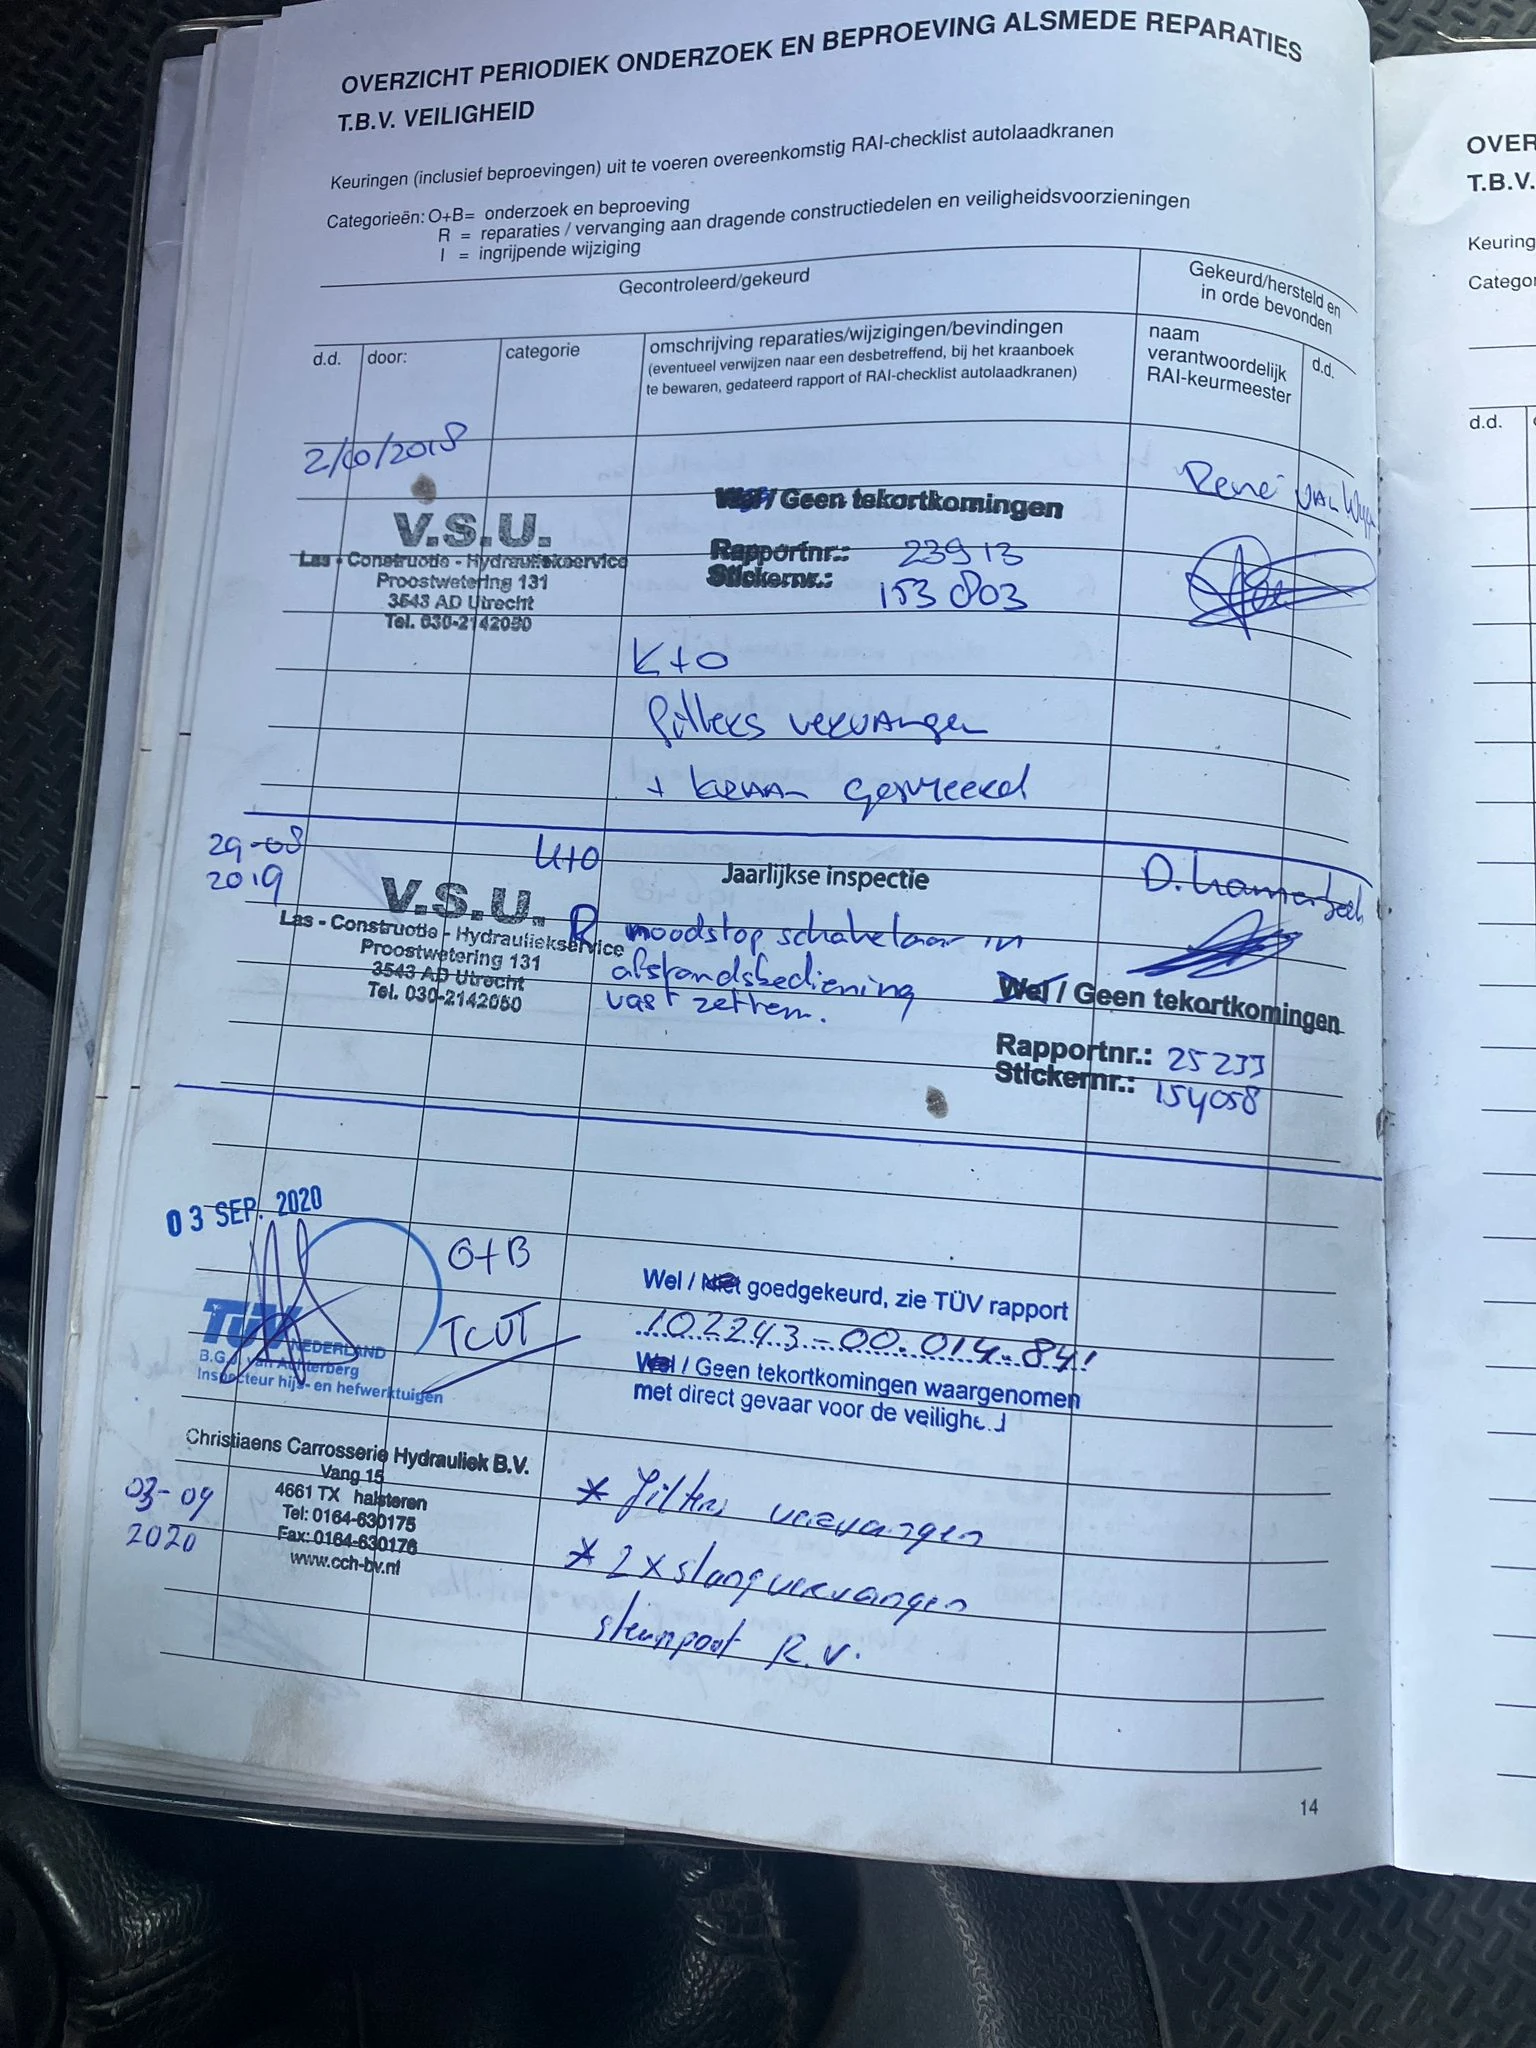 OVERZICHT PERIODIEK ONDERZOEK EN BEPROEVING ALSMEDE REPARATIES
T.B.V. VEILIGHEID
Keuringen (inclusief beproevingen) uit te voeren overeenkomstig RAI-checklist autolaadkranen
Categorieën: O+B= onderzoek en beproeving
R = reparaties / vervanging aan dragende constructiedelen en veiligheidsvoorzieningen
I = ingrijpende wijziging
Gecontroleerd/gekeurd
Gekeurd/hersteld en
in orde bevonden
d.d.
door:
categorie
omschrijving reparaties/wijzigingen/bevindingen
(eventueel verwijzen naar een desbetreffend, bij het kraanboek
te bewaren, gedateerd rapport of RAI-checklist autolaadkranen)
naam
verantwoordelijk
RAI-keurmeester
d.d.
2/10/2018
V.S.U.
Las - Constructie - Hydrauliekservice
Proostwetering 131
3543 AD Utrecht
Tel. 030-2142050
Wel / Geen tekortkomingen
Rapportnr.: 23913
Stickernr.: 153803
René van
K+O
filters vervangen
+ kraan gesmeerd
29-08
2019
K+O
V.S.U.
Las - Constructie - Hydrauliekservice
Proostwetering 131
3543 AD Utrecht
Tel. 030-2142050
Jaarlijkse inspectie
R noodstop schakelaar in
afstandsbediening
vast zetten.
D.
Wel / Geen tekortkomingen
Rapportnr.: 25233
Stickernr.: 154058
03 SEP. 2020
TÜV
NEDERLAND
B.G.J. van Achterberg
Inspecteur hijs- en hefwerktuigen
O+B
TCVT
Wel / Niet goedgekeurd, zie TÜV rapport
102243-00.014.841
Wel / Geen tekortkomingen waargenomen
met direct gevaar voor de veiligheid
Christiaens Carrosserie Hydrauliek B.V.
Vang 15
4661 TX halsteren
Tel: 0164-630175
Fax: 0164-630176
www.cch-bv.nl
03-09
2020
* filters vervangen
* 2x slang vervangen
steunpoot R.V.
14
OVER
T.B.V.
Keuring
Categor
d.d.